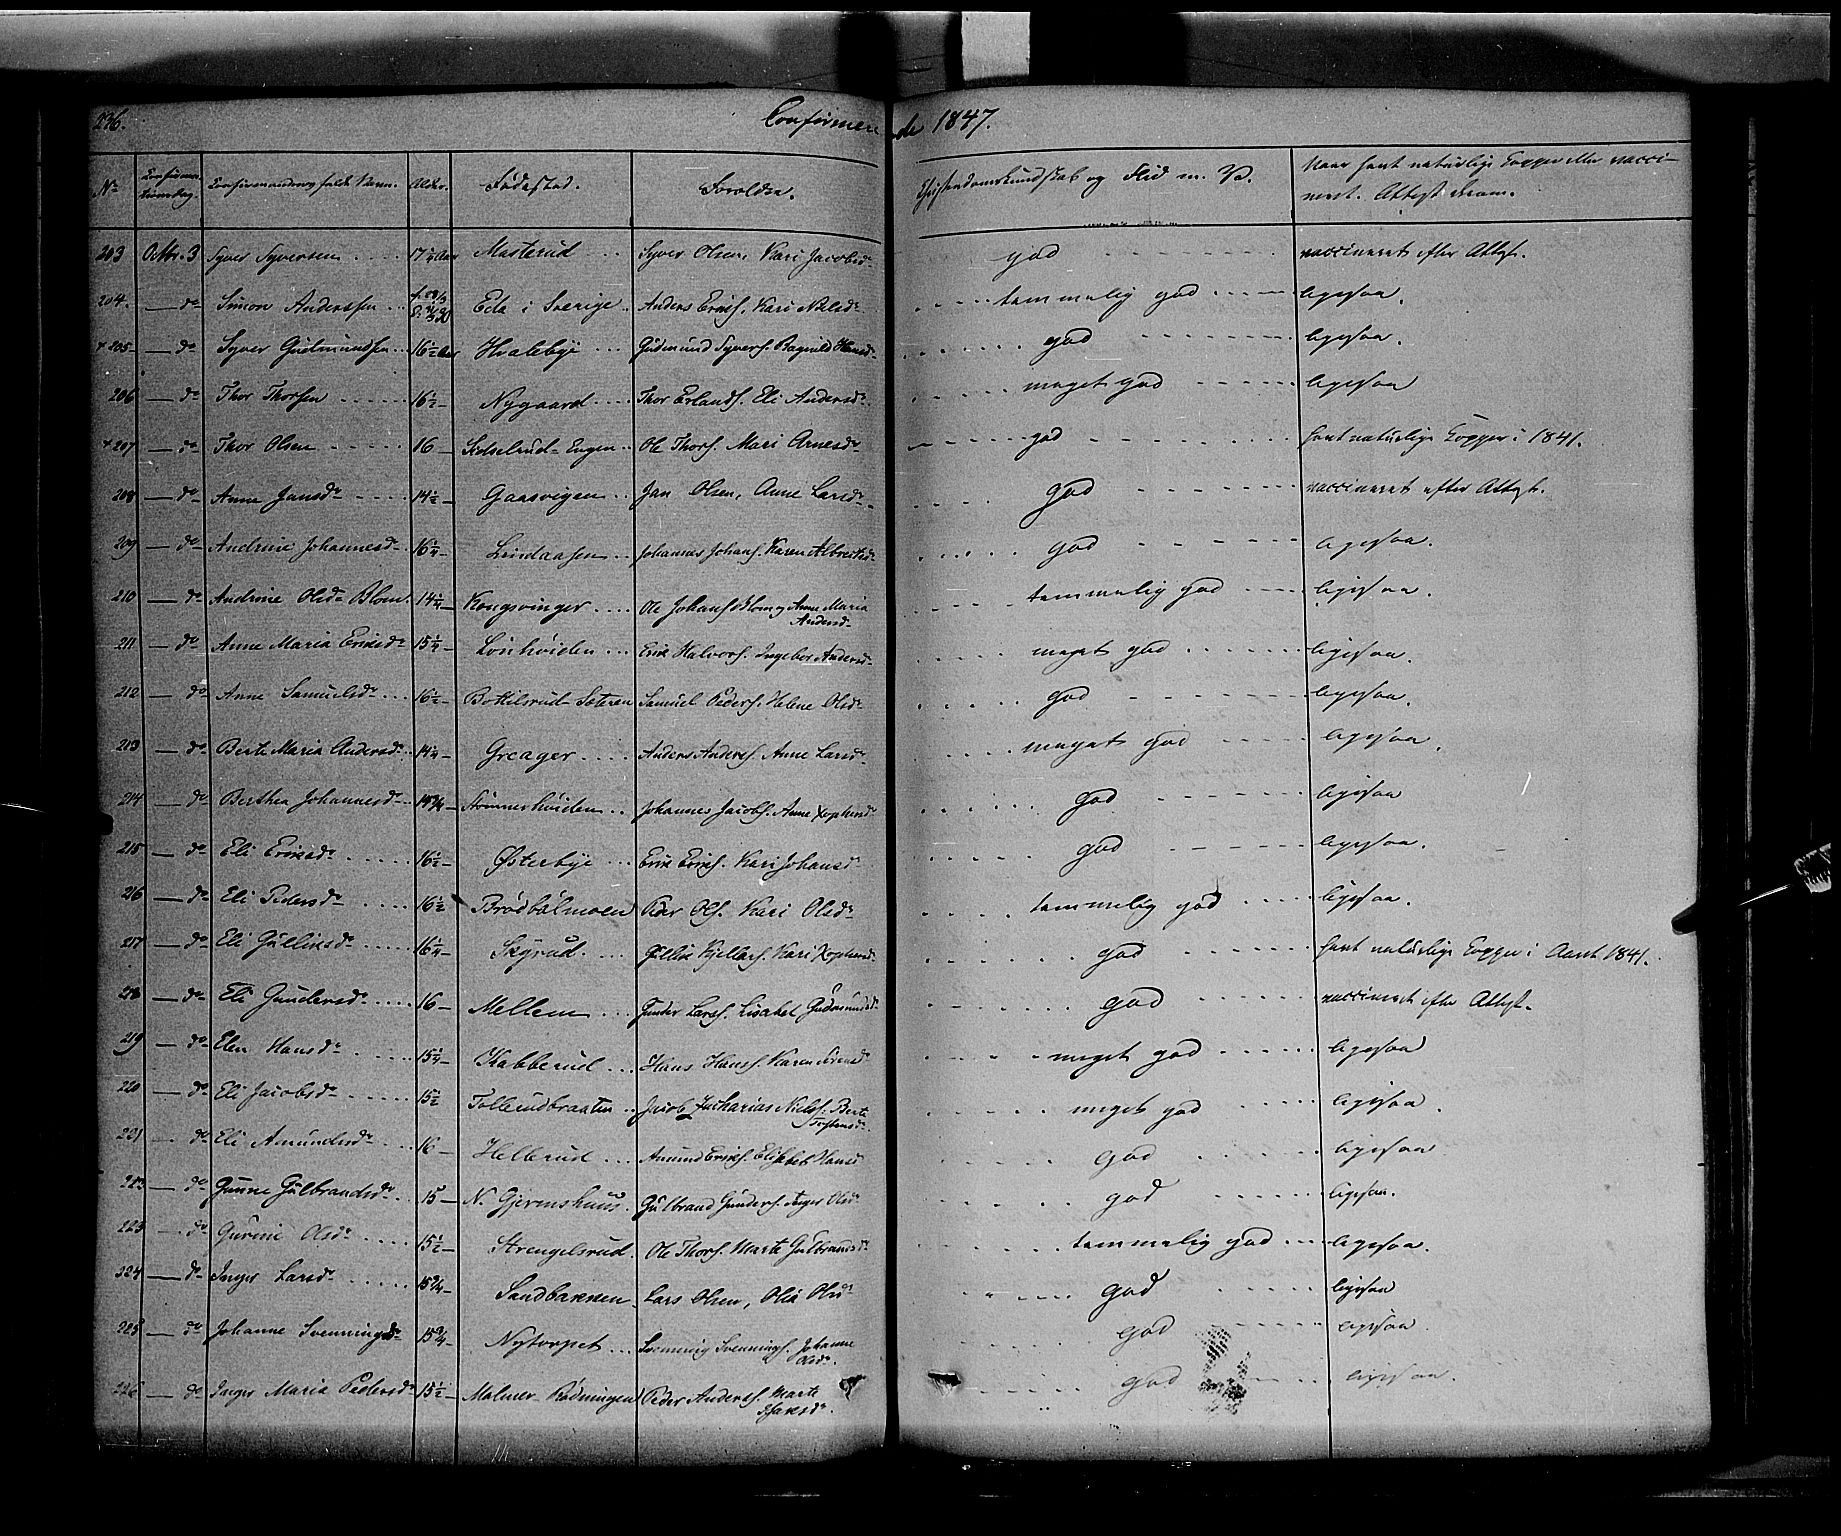 236.
Confirmerede 1847.
No Confirmationsdag. Confirmanderne fulde Navn. Alder. Fødested. Forældre. Christendomskundskab og Flid m. V. Naar havt naturlige Kopper eller vaccineret. Attest derom.
203 Octbr. 3 Syver Syversen 17 1/4 Aar Masterud Syver Olsen, Kari Jacobsdr god vaccineret efter Attest.
204. — do Simon Anderssen Eda i Sverige Anders Ericks. Kari Nilsdr temmelig god ligesaa.
+ 205 — do Syver Gudmundsen 16 1/2 Aar Hvalebye Gudmund Syvers. Ragnild Hansdr god ligesaa.
206 — do Thor Thorsen 16 1/2 — Nygaard Thor Erlands. Eli Andersdr meget god ligesaa
+ 207 — do Thor Olsen 16 — Sidselrud-Engen Ole Thors. Mari Arnesdr god havt naturlige Kopper i 1841.
208 — do Anne Jansdr 14 1/2 — Gaasvigen Jan Olsen, Anne Larsdr god vaccineret efter Attest.
209 — do Andrine Johannesdr 16 1/4 — Lindaasen Johannes Johans. Karen Albretsdr god ligesaa.
210 — do Andrine Olsdr Blom 14 1/4 — Kongsvinger Ole Johans Blom og Anne Maria Andersdr temmelig god ligesaa.
211 — do Anne Maria Ericksdr 15 1/4 — Lønhøiden Erik Halvors. Ingebor Andersdr meget god ligesaa.
212 — do Anne Samuelsdr 16 1/2 — Bottilsrud-Sæteren Samuel Peders. Helene Olsdr god ligesaa.
213 — do Berte Maria Andersdr 14 1/4 — Greager Anders Anders. Anne Larsdr meget god ligesaa.
214 — do Berthea Johannesdr — Strømmerhøiden Johannes Jacobs. Anne Xophersdr god ligesaa
215 — do Eli Eriksdr 16 1/2 — Østerbye Erik Eriks. Kari Johansdr god ligesaa.
216 — do Eli Pedersdr 16 1/2 Brødbølmoen Peder Ols. Kari Olsdr temmelig god ligesaa.
217 — do Eli Gulliksdr 16 1/4 — Skyrud Gullik Kjells. Kari Xophersdr god havt naturlige Kopper i Aaret 1841.
218 — do Eli Gundersdr 16 — Mellem Gunder Lars. Lisabet Gudmundsdr god vaccineret efter Attest.
219 — do Elen Hansdr 15 1/4 — Kabberud Hans Hans. Karen Sørensdr meget god ligesaa
220 — do Eli Jacobsdr 15 1/2 Tollerudbraaten Jacob Zacharias Niels. Berte Torstensdr meget god ligesaa.
221 — do Eli Amundsdr 16 — Hellerud Amund Eriks. Elisabet Hansd god ligesaa
222 — do Gunne Gulbrandsdr 15 — N. Gjermshuus Gulbrand Gunders. Inger Olsdr god ligesaa.
223 — do Gurine Olsdr 15 1/2 — Strengelsrud Ole Thors. Marte Gulbrandsdr temmelig god ligesaa.
224 — do Inger Larsdr 15 3/4 — Sandbakken Lars Olsen, Olia Olsdr god ligesaa
225 — do Johanne Svenningsdr 15 3/4 — Nytorpet Svenning Svennings. Johanne Olsdr god ligesaa.
226 — do Inger Maria Pedersdr 15 1/2 — Malmer Rødningen Peder Anders. Marte Isaksdr god ligesaa.